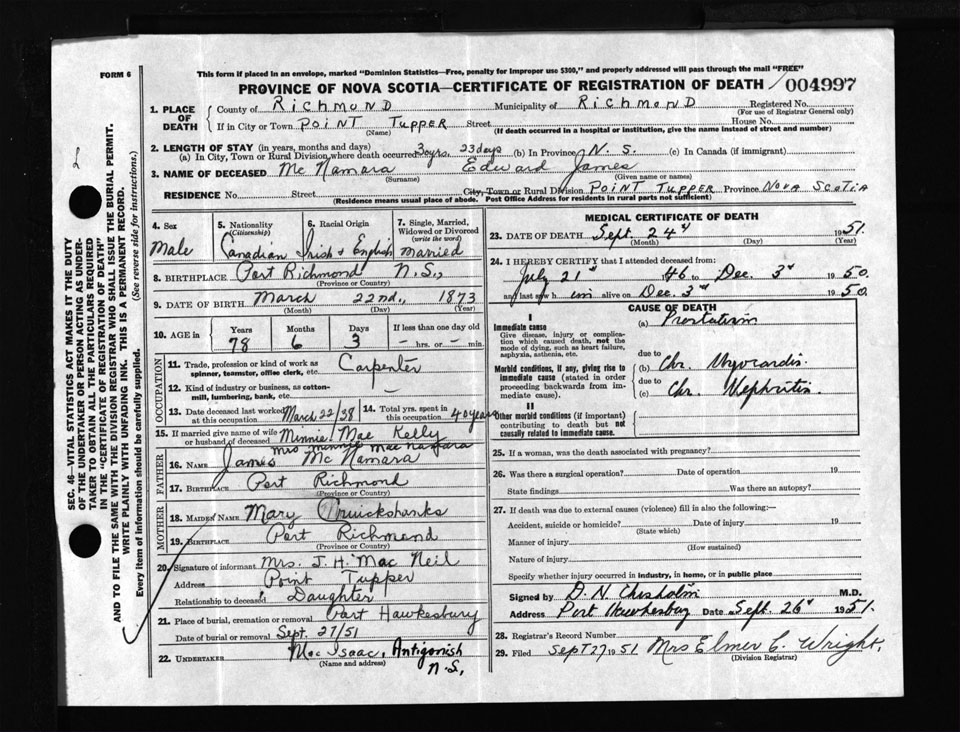 FORM 6
This form if placed in an envelope, marked "Dominion Statistics—Free, penalty for improper use $300," and properly addressed will pass through the mail "FREE"
PROVINCE OF NOVA SCOTIA—CERTIFICATE OF REGISTRATION OF DEATH 004997
SEC. 46—VITAL STATISTICS ACT MAKES IT THE DUTY
OF THE UNDERTAKER OR PERSON ACTING AS UNDER-
TAKER TO OBTAIN ALL THE PARTICULARS REQUIRED
IN THE "CERTIFICATE OF REGISTRATION OF DEATH"
AND TO FILE THE SAME WITH THE DIVISION REGISTRAR WHO SHALL ISSUE THE BURIAL PERMIT.
WRITE PLAINLY WITH UNFADING INK. THIS IS A PERMANENT RECORD.
Every item of information should be carefully supplied. (See reverse side for instructions.)
1. PLACE OF DEATH
County of Richmond Municipality of Richmond Registered No.
(For use of Registrar General only)
If in City or Town Point Tupper Street House No.
(Name) (If death occurred in a hospital or institution, give the name instead of street and number)
2. LENGTH OF STAY (in years, months and days)
(a) In City, Town or Rural Division where death occurred 3 yrs. 23 days (b) In Province N. S. (c) In Canada (if immigrant)
3. NAME OF DECEASED Mc Namara Edward James
(Surname) (Given name or names)
RESIDENCE No. Street City, Town or Rural Division Point Tupper Province Nova Scotia
(Residence means usual place of abode. Post Office Address for residents in rural parts not sufficient)
4. Sex Male
5. Nationality (Citizenship) Canadian
6. Racial Origin Irish & English
7. Single, Married, Widowed or Divorced (write the word) Married
8. BIRTHPLACE Port Richmond N.S.,
(Province or Country)
9. DATE OF BIRTH March 22nd., 1873
(Month) (Day) (Year)
10. AGE in Years 78 Months 6 Days 3 If less than one day old — hrs. or — min.
OCCUPATION
11. Trade, profession or kind of work as spinner, teamster, office clerk, etc. Carpenter
12. Kind of industry or business, as cotton-mill, lumbering, bank, etc. —
13. Date deceased last worked at this occupation March 22/38
14. Total yrs. spent in this occupation 40 years
15. If married give name of wife or husband of deceased Minnie Mae Kelly
Mrs Minnie Mac Namara
FATHER
16. NAME James Mc Namara
17. BIRTHPLACE Port Richmond
(Province or Country)
MOTHER
18. MAIDEN NAME Mary Cruickshanks
19. BIRTHPLACE Port Richmond
(Province or Country)
20. Signature of informant Mrs. J. H. Mac Neil
Address Point Tupper
Relationship to deceased Daughter
21. Place of burial, cremation or removal Port Hawkesbury
Date of burial or removal Sept. 27/51
22. UNDERTAKER Mac Isaac, Antigonish N.S.,
(Name and address)
MEDICAL CERTIFICATE OF DEATH
23. DATE OF DEATH Sept. 24 1951.
(Month) (Day) (Year)
24. I HEREBY CERTIFY that I attended deceased from:
July 21 46 to Dec. 3 1950.
and last saw him alive on Dec. 3 1950.
CAUSE OF DEATH
I
Immediate cause
Give disease, injury or complication which caused death, not the mode of dying, such as heart failure, asphyxia, asthenia, etc.
(a) Prostatism
due to
Morbid conditions, if any, giving rise to immediate cause (stated in order proceeding backwards from immediate cause).
(b) Chr. Myocardis
due to
(c) Chr. Nephritis
II
Other morbid conditions (if important) contributing to death but not causally related to immediate cause.
25. If a woman, was the death associated with pregnancy?
26. Was there a surgical operation? Date of operation 19
State findings Was there an autopsy?
27. If death was due to external causes (violence) fill in also the following:—
Accident, suicide or homicide? Date of injury 19
(State which)
Manner of injury
(How sustained)
Nature of injury
Specify whether injury occurred in industry, in home, or in public place
Signed by D. N. Chisholm M.D.
Address Port Hawkesbury Date Sept. 26 1951.
28. Registrar's Record Number
29. Filed Sept 27 1951 Mrs Elmer C. Wright,
(Division Registrar)